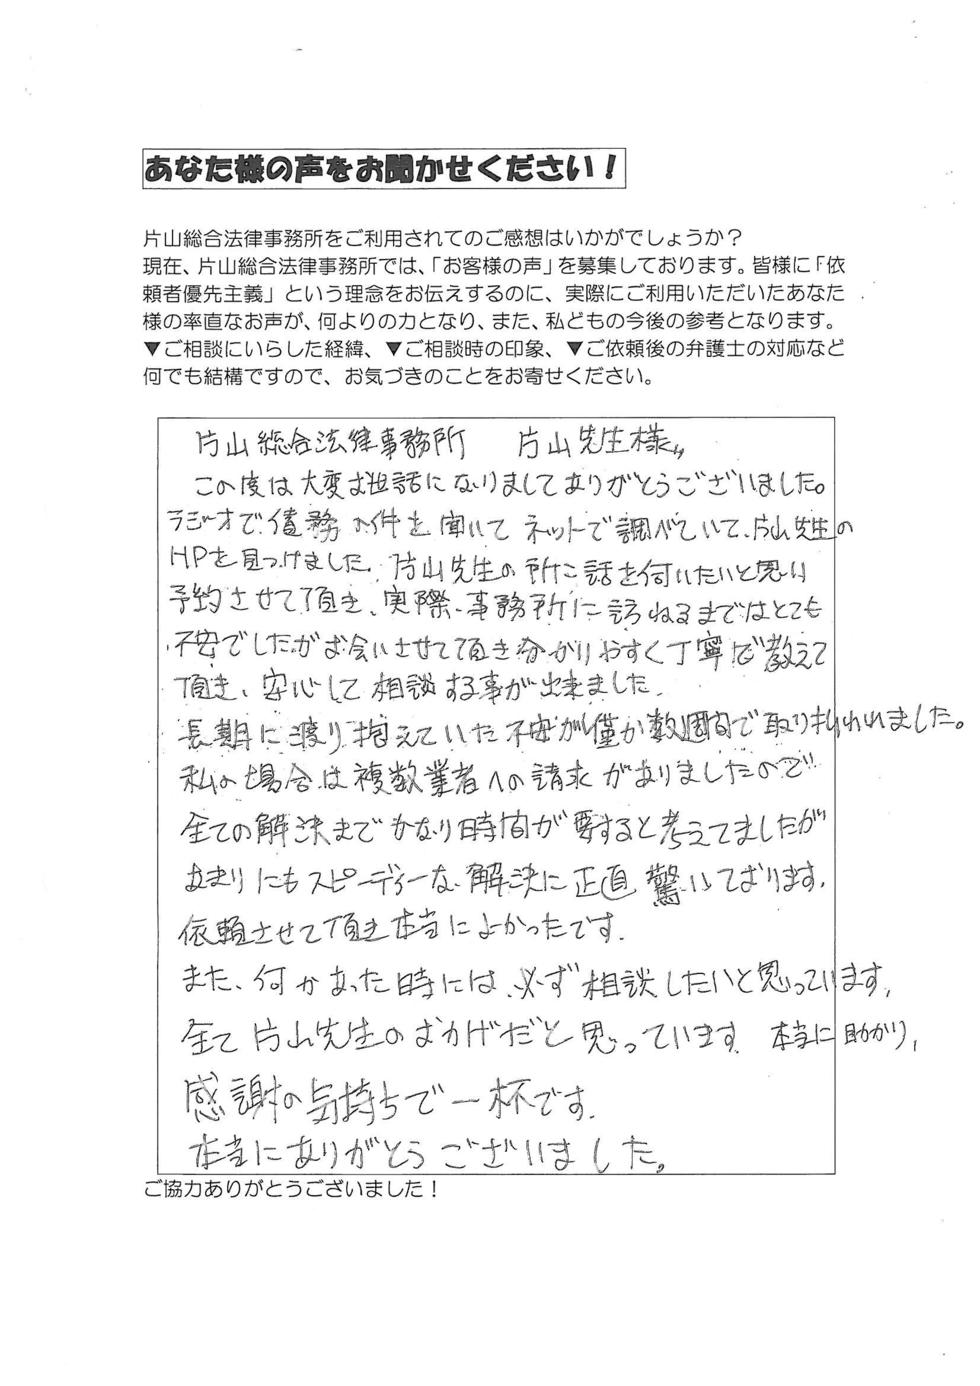 あなた様の声をお聞かせください！
片山総合法律事務所をご利用されてのご感想はいかがでしょうか？
現在、片山総合法律事務所では、「お客様の声」を募集しております。皆様に「依
頼者優先主義」という理念をお伝えするのに、実際にご利用いただいたあなた
様の率直なお声が、何よりの力となり、また、私どもの今後の参考となります。
▼ご相談にいらした経緯、▼ご相談時の印象、▼ご依頼後の弁護士の対応など
何でも結構ですので、お気づきのことをお寄せください。
片山総合法律事務所　片山先生様
この度は大変お世話になりましてありがとうございました。
ラジオで債務の件を聞いてネットで調べていて、片山先生の
HPを見つけました。片山先生の所に話を伺いたいと思い
予約させて頂き、実際、事務所に訪ねるまではとても
不安でしたがお会いさせて頂き分かりやすく丁寧で教えて
頂き、安心して相談する事が出来ました。
長期に渡り抱えていた不安が僅か数週間で取り払われました。
私の場合は複数業者への請求がありましたので
全ての解決までかなり時間が要すると考えてましたが
あまりにもスピーディーな解決に正直驚いております。
依頼させて頂き本当によかったです。
また、何かあった時には、必ず相談したいと思っています。
全て片山先生のおかげだと思っています。本当に助かり、
感謝の気持ちで一杯です。
本当にありがとうございました。
ご協力ありがとうございました！